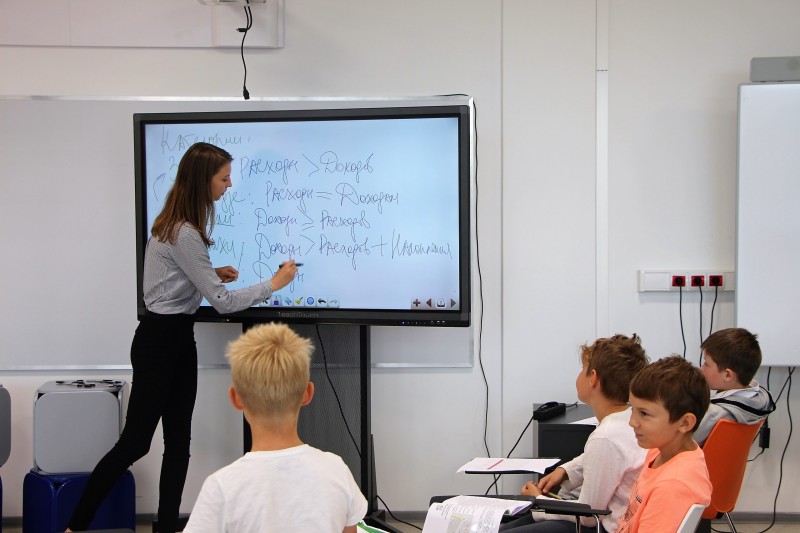 Категории:
Расходы > Доходов
: Расходы = Доходам
: Доходы ≥ Расходов
Доходы > Расходов + Накопления
TeachTouch